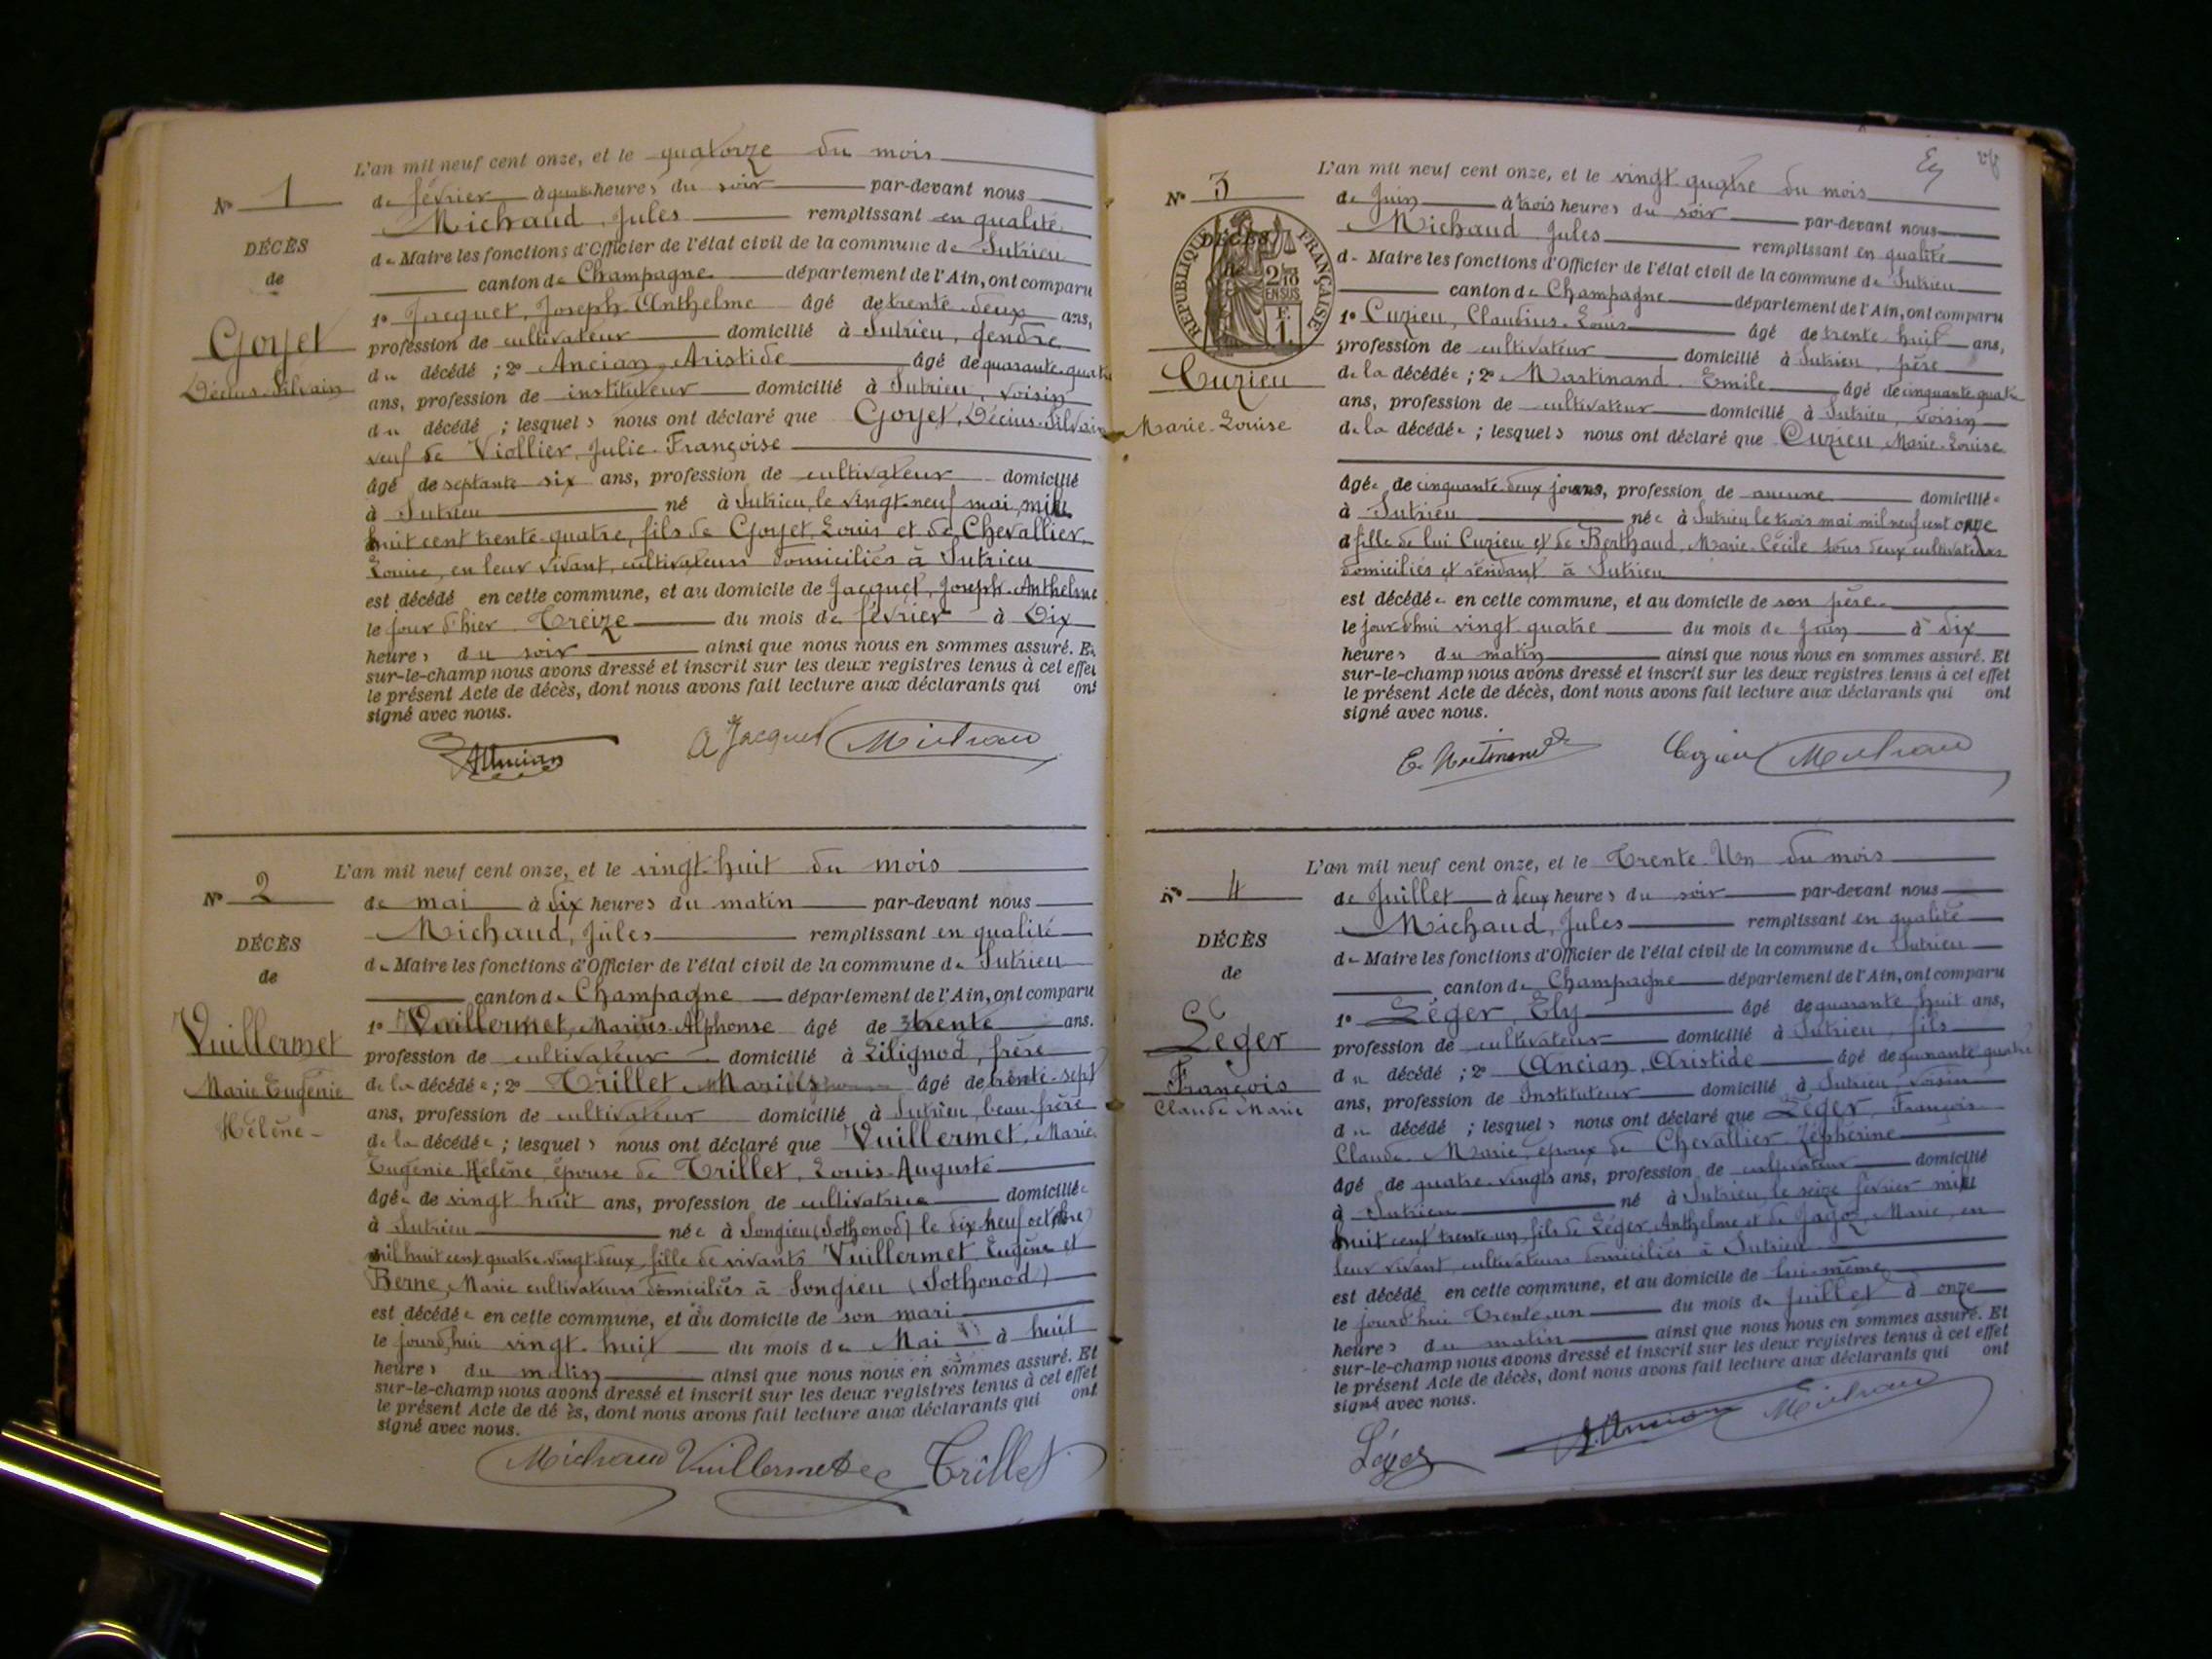 L'an mil neuf cent onze, et le quatorze du mois
N° 1
de février à quatre heures du soir par-devant nous
Michaud, Jules remplissant en qualité
DÉCÈS
de Maire les fonctions d'Officier de l'état civil de la commune de Sutrieu
de
canton de Champagne département de l'Ain, ont comparu
1° Jacquet, Joseph-Anthelme âgé de trente-deux ans,
Goyet
profession de cultivateur domicilié à Sutrieu, gendre
du décédé ; 2° Ancian, Aristide âgé de quarante-quatre
Décius-Silvain
ans, profession de instituteur domicilié à Sutrieu, voisin
du décédé ; lesquels nous ont déclaré que Goyet, Décius-Silvain
veuf de Viollier, Julie-Françoise
âgé de septante six ans, profession de cultivateur domicilié
à Sutrieu né à Sutrieu, le vingt-neuf mai, mil
huit cent trente-quatre, fils de Goyet, Louis et de Chevallier,
Louise, en leur vivant, cultivateurs domiciliés à Sutrieu
est décédé en cette commune, et au domicile de Jacquet, Joseph-Anthelme
le jour d'hier Treize du mois de février à Dix
heures du soir ainsi que nous nous en sommes assuré. Et
sur-le-champ nous avons dressé et inscrit sur les deux registres tenus à cet effet
le présent Acte de décès, dont nous avons fait lecture aux déclarants qui ont
signé avec nous.
AAncian A Jacquet Michaud
L'an mil neuf cent onze, et le vingt-huit du mois
N° 2
de mai à dix heures du matin par-devant nous
Michaud, Jules remplissant en qualité
DÉCÈS
de Maire les fonctions d'Officier de l'état civil de la commune de Sutrieu
de
canton de Champagne département de l'Ain, ont comparu
1° Vuillermet, Marius-Alphonse âgé de trente ans.
Vuillermet
profession de cultivateur domicilié à Lilignod, frère
Marie-Eugénie
de la décédée ; 2° Trillet Marius âgé de trente-sept
ans, profession de cultivateur domicilié à Sutrieu, beau-frère
Hélène
de la décédée ; lesquels nous ont déclaré que Vuillermet, Marie
Eugénie Hélène, épouse de Trillet, Louis-Auguste
âgée de vingt huit ans, profession de cultivatrice domiciliée
à Sutrieu née à Songieu (Sothonod) le dix neuf octobre
mil huit cent quatre-vingt-deux, fille de vivants Vuillermet Eugène et
Berne, Marie cultivateurs domiciliés à Songieu (Sothonod)
est décédée en cette commune, et au domicile de son mari
le jourd'hui vingt-huit du mois de Mai à huit
heures du matin ainsi que nous nous en sommes assuré. Et
sur-le-champ nous avons dressé et inscrit sur les deux registres tenus à cet effet
le présent Acte de dé ès, dont nous avons fait lecture aux déclarants qui ont
signé avec nous.
Michaud Vuillermet Trillet
L'an mil neuf cent onze, et le vingt-quatre du mois
N° 3
de Juin à trois heures du soir par-devant nous
Michaud Jules remplissant en qualité
DÉCÈS
de
RÉPUBLIQUE FRANÇAISE
2/10
EN SUS
F.
1
de Maire les fonctions d'Officier de l'état civil de la commune de Sutrieu
canton de Champagne département de l'Ain, ont comparu
1° Cuzieu, Claudius-Louis âgé de trente-huit ans,
profession de cultivateur domicilié à Sutrieu, père
Cuzieu
de la décédée ; 2° Martinand Emile âgé de cinquante quatre
ans, profession de cultivateur domicilié à Sutrieu, voisin
Marie-Louise
de la décédée ; lesquels nous ont déclaré que Cuzieu, Marie-Louise
âgée de cinquante-deux jours, profession de aucune domiciliée
à Sutrieu née à Sutrieu le trois mai mil neuf cent onze
fille de lui Cuzieu et de Berthaud, Marie-Cécile tous deux cultivateurs
domiciliés et résidant à Sutrieu
est décédée en cette commune, et au domicile de son père
le jourd'hui vingt-quatre du mois de Juin à dix
heures du matin ainsi que nous nous en sommes assuré. Et
sur-le-champ nous avons dressé et inscrit sur les deux registres tenus à cet effet
le présent Acte de décès, dont nous avons fait lecture aux déclarants qui ont
signé avec nous.
E. Martinand Cuzieu Michaud
L'an mil neuf cent onze, et le Trente-Un du mois
N° 4
de Juillet à deux heures du soir par-devant nous
Michaud, Jules remplissant en qualité
DÉCÈS
de Maire les fonctions d'Officier de l'état civil de la commune de Sutrieu
de
canton de Champagne département de l'Ain, ont comparu
1° Léger, Ely âgé de quarante huit ans,
Léger
profession de cultivateur domicilié à Sutrieu, fils
du décédé ; 2° Ancian, Aristide âgé de quarante-quatre
François
ans, profession de Instituteur domicilié à Sutrieu, voisin
Claude Marie
du décédé ; lesquels nous ont déclaré que Léger, François
Claude-Marie, époux de Chevallier Zépherine
âgé de quatre-vingts ans, profession de cultivateur domicilié
à Sutrieu né à Sutrieu, le seize février mil
huit cent trente-un, fils de Léger Anthelme et de Jagoz, Marie, en
leur vivant, cultivateurs domiciliés à Sutrieu
est décédé en cette commune, et au domicile de lui-même
le jourd'hui Trente-un du mois de Juillet à onze
heures du matin ainsi que nous nous en sommes assuré. Et
sur-le-champ nous avons dressé et inscrit sur les deux registres tenus à cet effet
le présent Acte de décès, dont nous avons fait lecture aux déclarants qui ont
signé avec nous.
Léger AAncian Michaud